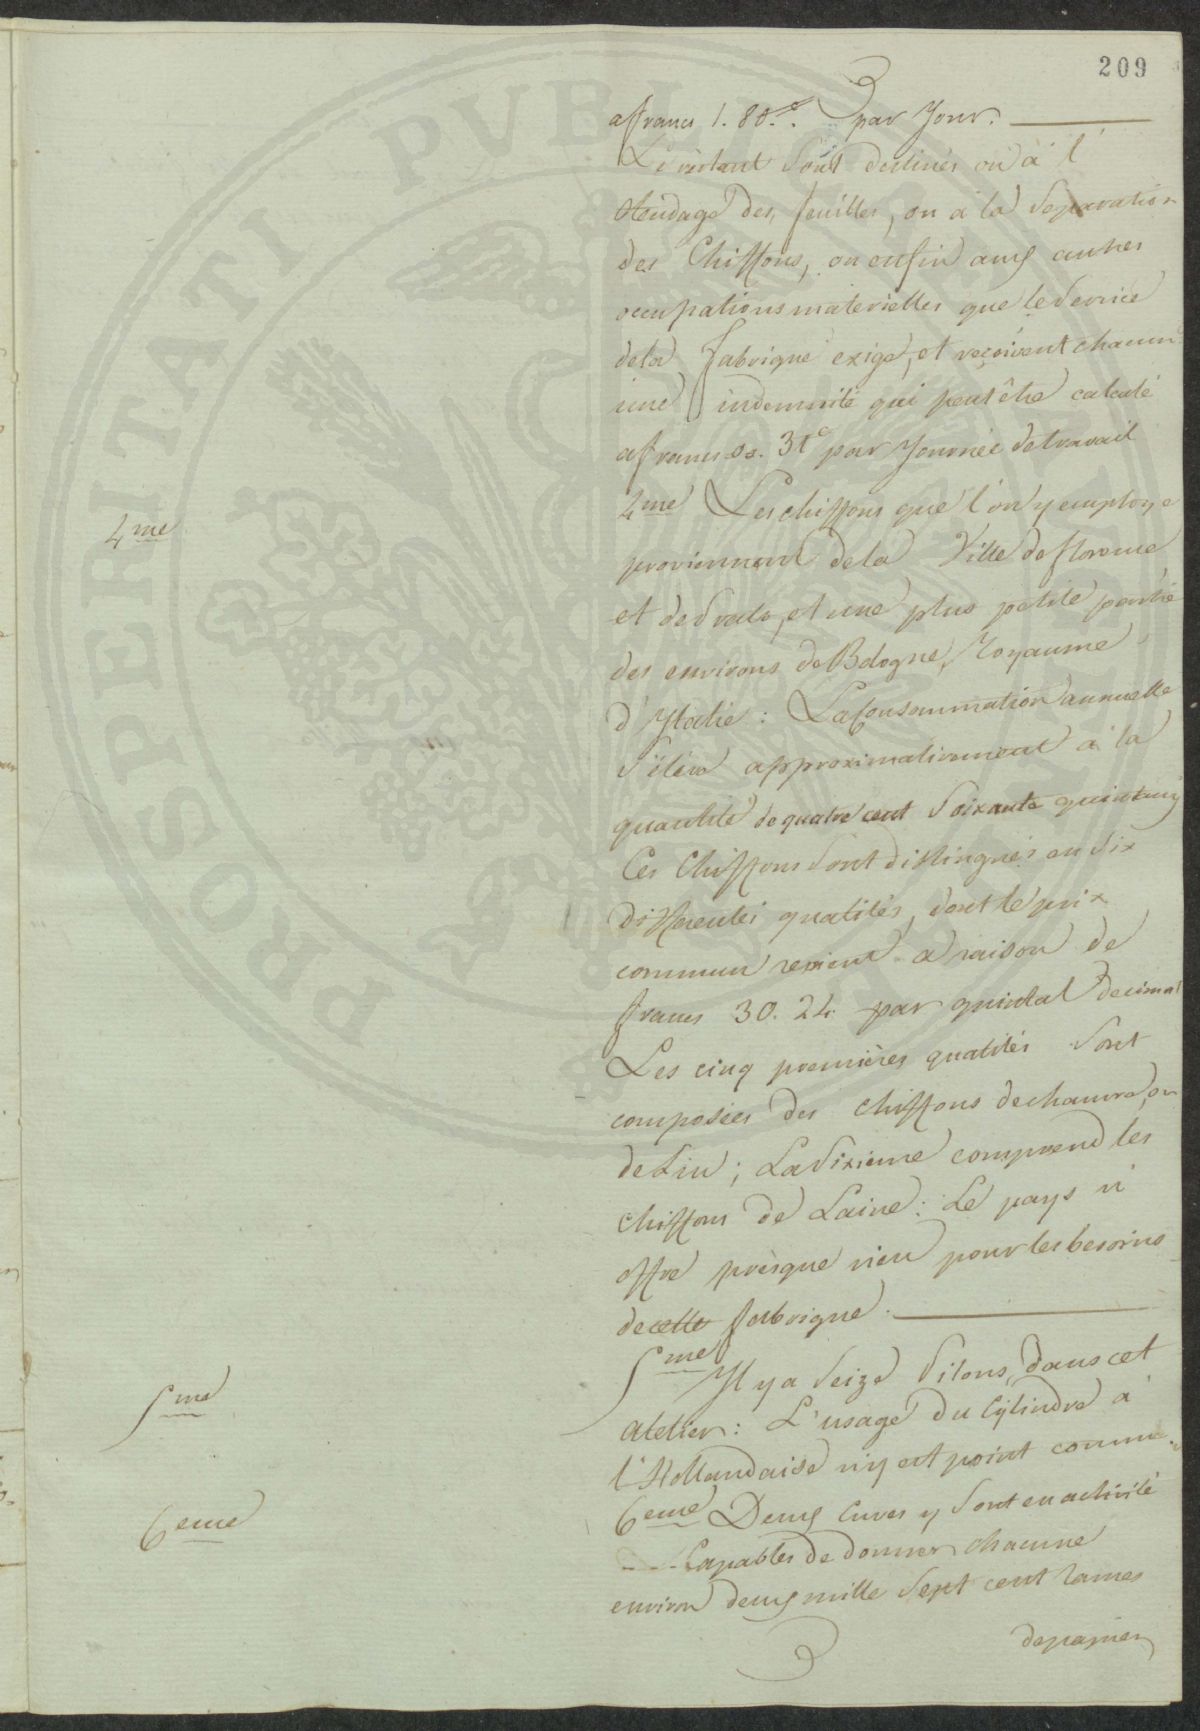 209
a francs 1. 80.c par Jour.
Le restant sont destinés ou à l'
étendage des feuilles, ou à la Separation
des Chiffons, ou enfin aux autres
occupations materielles que le Service
de la fabrique exige, et reçoivent chacun
une indemnité qui peut être calculé
a francs 00. 31c par Journée de travail
4me
4me Les chiffons que l'on y employe
proviennent de la Ville de florence
et de Prato, et une plus petite partie
des environs de Bologne, Royaume
d'Ytalie : La Consommation annuelle
S'éleve approximativement à la
quantité de quatre cent Soixante quintaux
Ces Chiffons Sont distingués en Six
differentes qualités, dont le prix
commun revient a raison de
francs 30. 24. par quintal decimal
Les cinq premières qualités Sont
composées des chiffons de chanvre, ou
de Lin ; La Sixieme comprend les
chiffons de Laine : Le pays n'
offre presque rien pour les besoins
de cette fabrique.
5me
5me Yl y a Seize Pilons dans cet
atelier : L'usage du Cylindre à
l'Hollandaise n'y est point connu.
6eme
6eme Deux Cuves y Sont en activité
Capables de donner chacune
environ deux mille Sept cent rames
de papier
PROSPERITATI PVBLICAE